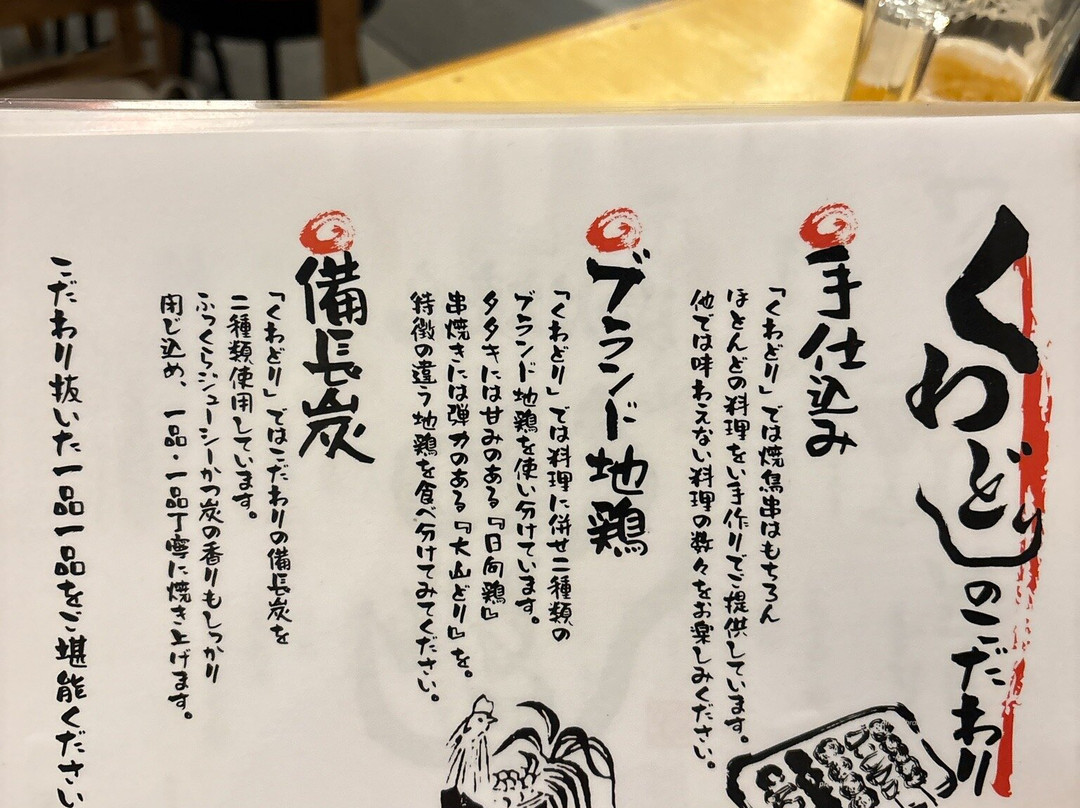 くわどりのこだわり
手仕込み
「くわどり」では焼鳥串はもちろん
ほとんどの料理をい手作りでご提供しています。
他では味わえない料理の数々をお楽しみください。
ブランド地鶏
「くわどり」では料理に併せ二種類の
ブランド地鶏を使い分けています。
タタキには甘みのある『日向鶏』
串焼きには弾力のある『大山どり』を。
特徴の違う地鶏を食べ分けてみてください。
備長炭
「くわどり」ではこだわりの備長炭を
二種類使用しています。
ふっくらジューシーかつ炭の香りもしっかり
閉じ込め、一品・一品丁寧に焼き上げます。
こだわり抜いた一品一品をご堪能ください